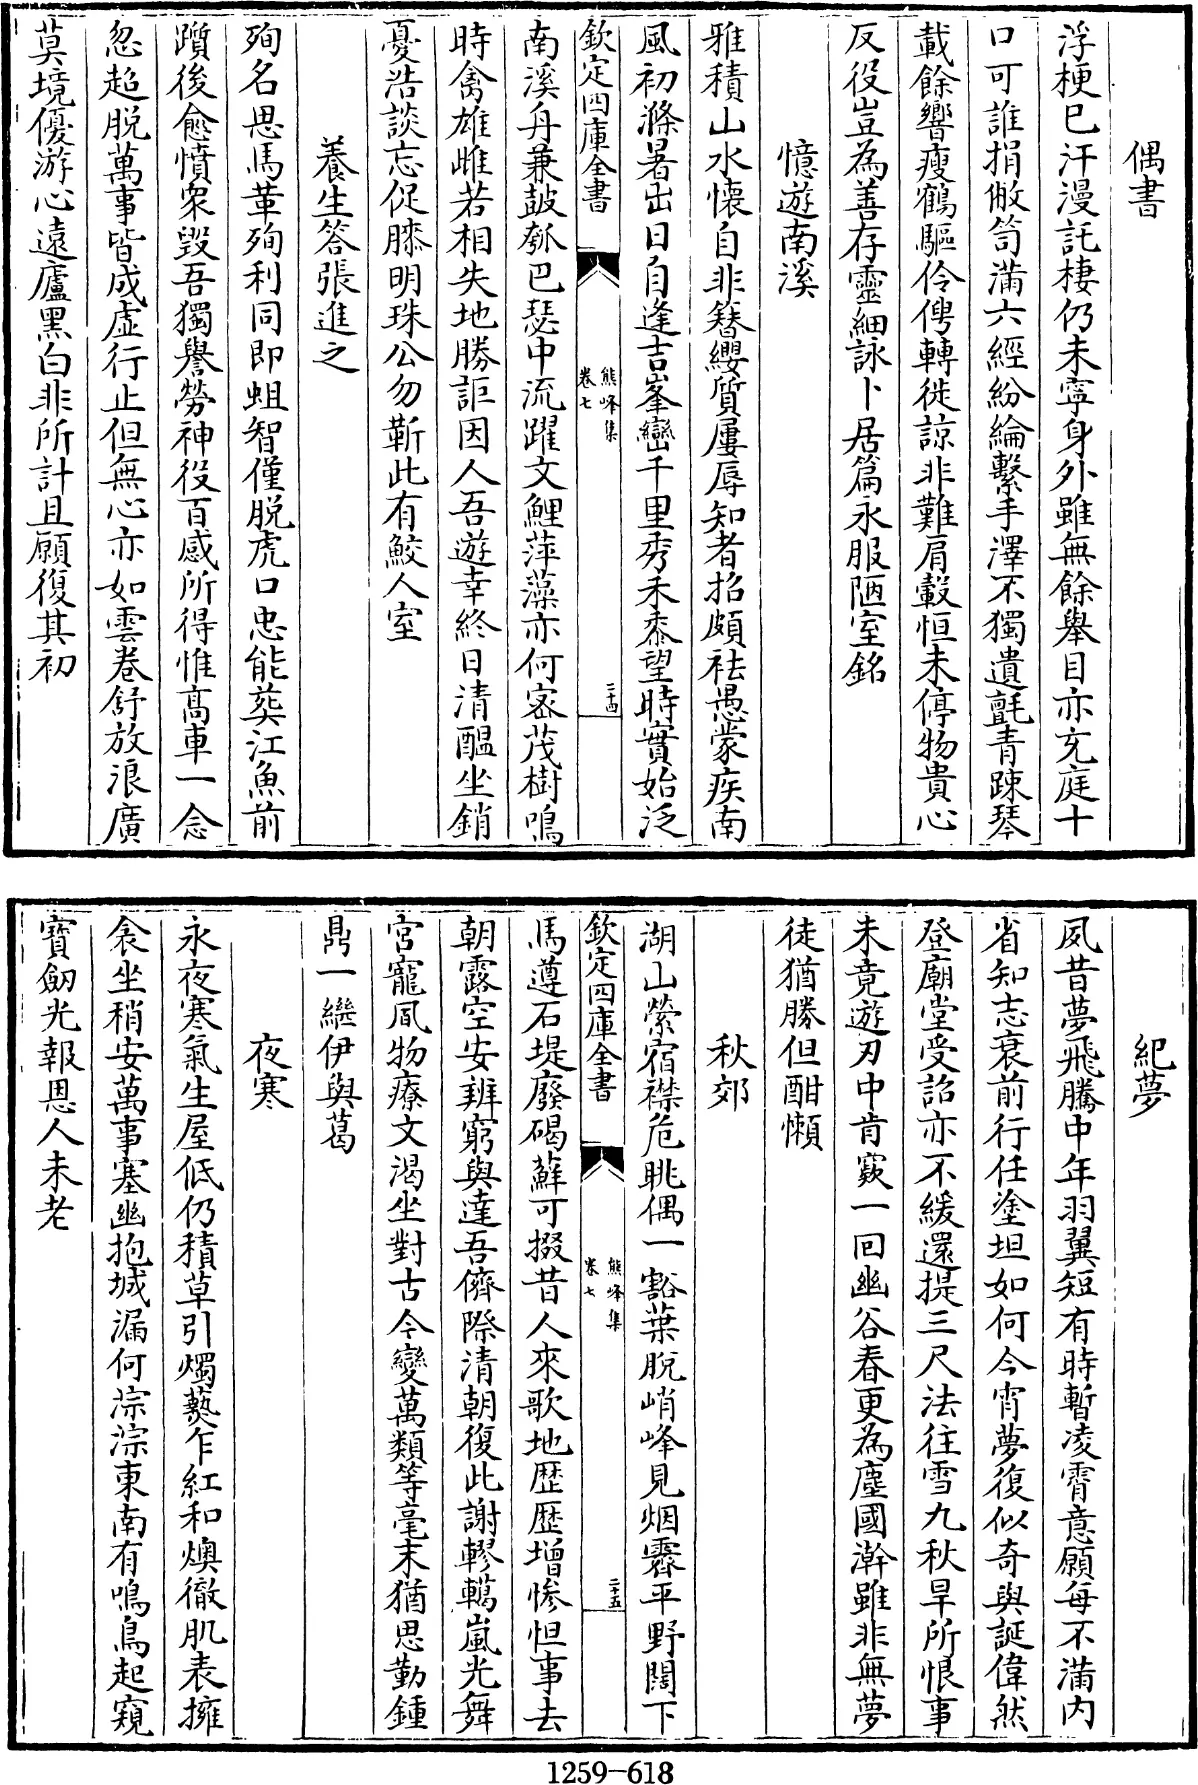 偶書
浮梗已汗漫託棲仍未寧身外雖無餘舉目亦充庭十
口可誰捐敝笥滿六經紛綸繫手澤不獨遺氊青踈琴
載餘響瘦鶴驅伶俜轉徙諒非難肩轂恒未停物貴心
反役豈為善存靈細詠卜居篇永服陋室銘
憶遊南溪
雅積山水懷自非簪纓質屢辱知者招頗袪愚蒙疾南
風初滌暑出日自逢吉峯巒千里秀禾黍望時實始泛
欽定四庫全書
熊峰集
卷七
二十四
南溪舟兼鼓瓠巴瑟中流躍文鯉萍藻亦何宻茂樹鳴
時禽雄雌若相失地勝詎因人吾遊幸終日清醖坐銷
憂浩談忘促膝明珠公勿靳此有鮫人室
養生答張進之
殉名思馬革殉利同即蛆智僅脱虎口忠能葬江魚前
躓後愈憤衆毀吾獨譽勞神役百感所得惟髙車一念
忽超脱萬事皆成虛行止但無心亦如雲卷舒放浪廣
莫境優游心遠廬黑白非所計且願復其初
紀夢
夙昔夢飛騰中年羽翼短有時暫凌霄意願每不滿内
省知志衰前行任塗坦如何今宵夢復似奇與誕偉然
登廟堂受詔亦不緩還提三尺法往雪九秋旱所恨事
未竟遊刃中肯窾一回幽谷春更為塵國澣雖非無夢
徒猶勝但酣懶
秋郊
湖山縈宿襟危眺偶一豁葉脱峭峰見烟霽平野闊下
欽定四庫全書
熊峰集
卷七
二十五
馬遵石堤廢碣蘚可掇昔人來歌地歴歴增惨怛事去
朝露空安辨窮與達吾儕際清朝復此謝轇轕嵐光舞
宮寵風物療文渴坐對古今變萬類等毫末猶思勤鍾
鼎一繼伊與葛
夜寒
永夜寒氣生屋低仍積草引燭爇乍紅和燠徹肌表擁
衾坐稍安萬事塞幽抱城漏何淙淙東南有鳴鳥起窺
寶劒光報恩人未老
1259-618